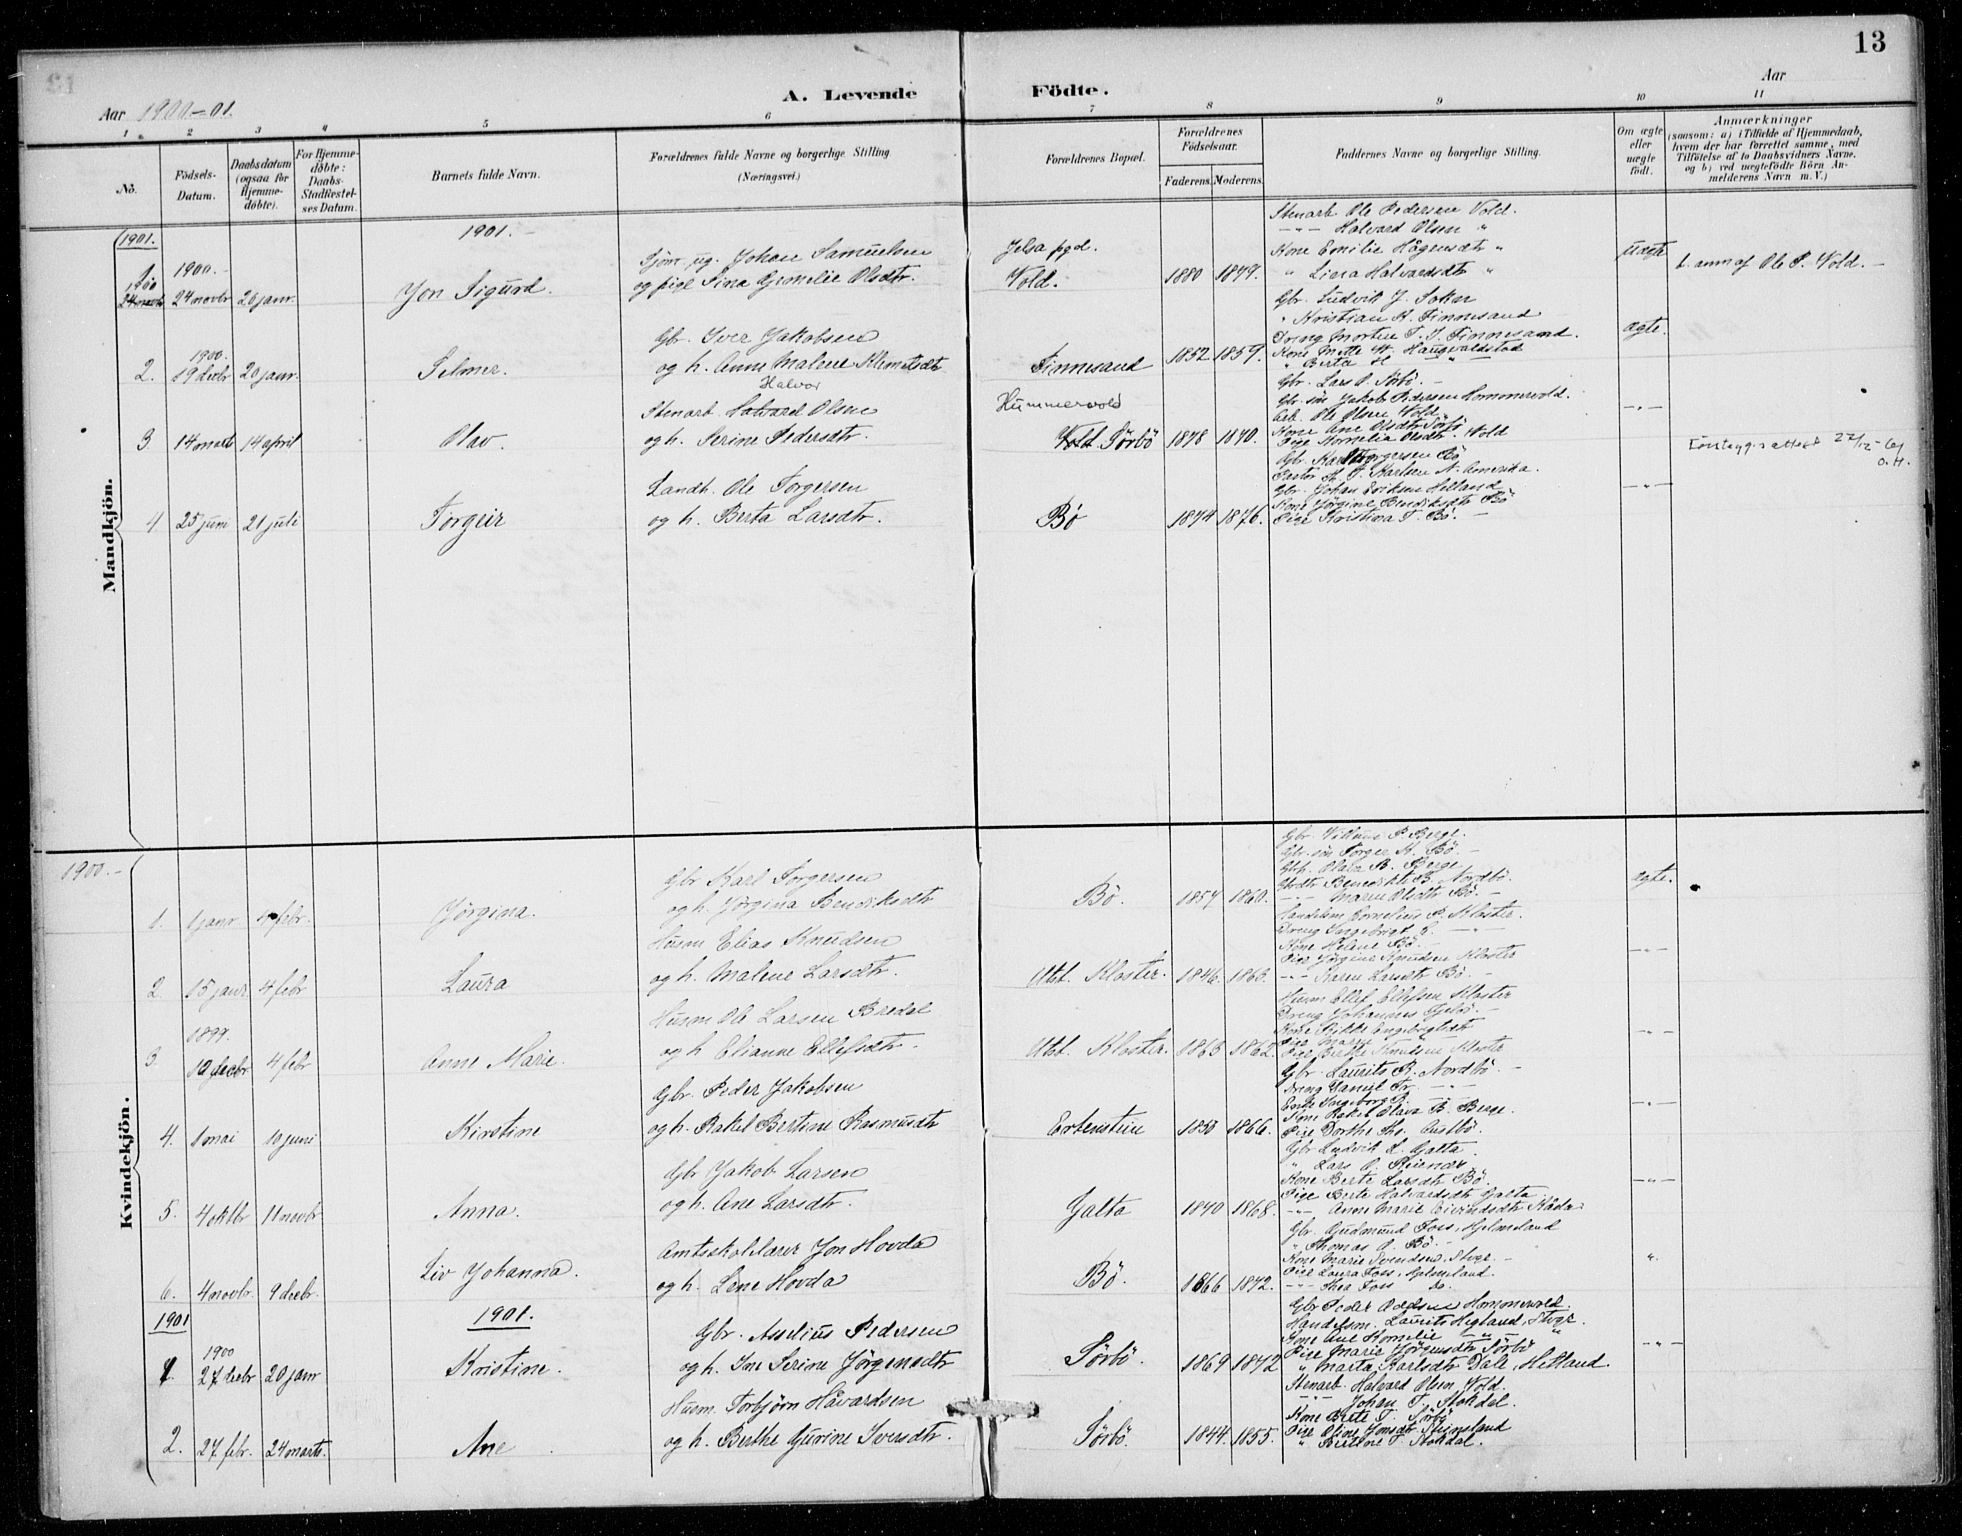 13
Aar 1900-01.
A. Levende Födte.
Aar
1 2 3 4 5 6 7 8 9 10 11
No.
Födsels-Datum.
Daabsdatum (ogsaa for Hjemme-döbte).
For Hjemme-döbte: Daabs-Stadfæstelses Datum.
Barnets fulde Navn.
Forældrenes fulde Navne og borgerlige Stilling (Næringsvei.)
Forældrenes Bopæl.
Forældrenes Födselsaar.
Faderens. Moderens.
Faddernes Navne og borgerlige Stilling.
Om ægte eller uægte födt.
Anmærkninger
(saasom: a) i Tilfælde af Hjemmedaab, hvem der har forrettet samme, med Tilföielse af to Daabsvidners Navne, og b) ved uægtefödte Börn Anmelderens Navn m. V.)
Mandkjön.
1901.
1901.-
1900.-
24 novbr 20 janr. Jon Sigurd.
Johan Samuelsen
og pige Sina Gjmelie Olsdtr.
Jelsa pgd.
Vold. 1880 1879.
Stenarb Ole Pedersen Vold.
-"- Halvard Olsen "
Kone Emilie Hågensdt "
" Halvardsdt "
Uægte
b. anm af Ole P. Vold.-
1900.
2. 19 decbr 20 janr. Selmer.
Gbr. Iver Jakobsen
og h. Anne Malene Klemetsdt
Finnesand 1852 1859.
Gbr. Ludvik J. Sokn
" Kristian K. Finnesand
Dreng Morten T. J. Finnesand.
Kone Mette W. Haugvaldstad
" Berta H "
ægte.
3. 14 marts 14 april Olav.
Halvor
Stenarb. Halvard Olsen
og h. Serine Pedersdtr.
Hummervold
Vold Sörbö 1878 1870.
Gbr. Lars O. Sörbö.-
Gbr. sön Jakob Pedersen Hommervold.
Arb. Ole Olsen Vold.
Kone Ane Olsdtr Sörbö
Pige Kornelia Olsdtr. Vold
-"-
22/12-61
O.H.
4 25 juni 21 juli Torgeir
Landh. Ole Torgersen
og h. Berta Larsdtr.
Bö 1874 1876.
Gbr. Karl Torgersen Bö
Pastor K. T. Karlsen N. Amerika.
Gbr. Johan Eriksen Helland
Kone Jörgine Bendiksdtr Bö
Pige Kristina T. Bö.-
-"-
Kvindekjön.
1900.-
1. 1 janr 4 febr. Jörgina.
Gbr Karl Torgersen
og h. Jörgina Bendiksdtr
Bö. 1857 1860.
P. Berge.
Gbr. sön Torger K. Bö.-
Olava B. Berge
Benedikte B. Nordbö.
-"- Maren Olsdtr Bö.-
ægte.
2 15 janr 4 febr Laura
Husm Elias Knudsen
og h. Malene Larsdtr.
Utst. Kloster. 1846. 1863.
Handelsm Cornelius P. Kloster.
Dreng Ingebrigt E. -"-
Kone Helene Bö.-
Pige Jörgine Knudsen Kloster
-"- Karen Larsdtr Bö.-
-"-
1899.
3. 12 decbr 4 febr Anne Marie.
Husm Ole Larsen Bredal
og h Elianne Ellefsdtr.
Utst. Kloster. 1863 1862.
Husm Ellef Ellefsen Kloster
Dreng Johannes
Pige Marie
Pige Berthe Knudsen Kloster
-"-
4. 1 mai 10 juni Kirstine
Gbr. Peder Jakobsen
og h. Rakel Bertine Rasmusdt
Ertenstein 1853 1866.
Gbr. Laurits R. Nordbö.-
Dreng Daniel Fr. -"-
Kone Rakel Olava B. Berge.
Pige Dorthe Austbö.
-"-
5. 4 oktbr 11 novbr Anna.
Gbr Jakob Larsen
og h. Ane Larsdtr.
Galta 1840 1868.
Gbr Ludvik L. Galta.
" Lars O.
Kone Berte Larsdtr Bö.
Pige Berte Halvardsdtr Galta
-"- Anne Marie Eivindsdtr Kåda
-"-
6. 4 novbr. 9 decbr. Liv Johanna.
Amtsskolelærer Jon Hovda
og h. Lene Hovda
Bö. 1866 1872.
Gbr. Gudmund Foss, Hjelmeland
" Thomas O. Bö.-
Kone Marie Svendsen, Stvgr.-
Pige Laura Foss, Hjelmeland.
-"- Thea Foss do.
"
1901
1901.
1900
1. 27 decbr 20 janr Kristine.
Gbr. Asselius Pedersen
og h. Ine Serine Jörgensdtr
Sörbö. 1869 1872
Gbr Peder Hommervold.
Handelsm. Laurits Hegland, Stvgr.
Kone Ane Kornelie " "
Pige Marie Jörgensdtr Sörbö
" Marta Karlsdtr Dale, Hetland.
-"-
2. 27 febr. 24 marts. Ane
Husm. Torbjörn Håvardsen
og h. Berthe Gurine Iversdtr.
Sörbö. 1844. 1855.
Stenarb. Halvard Olsen Vold.
-"- Johan T. Stokdal.
Kone Berte T. Sörbö
Pige Oline Jonsdtr Steinsland
" Bertine T. Stokdal.